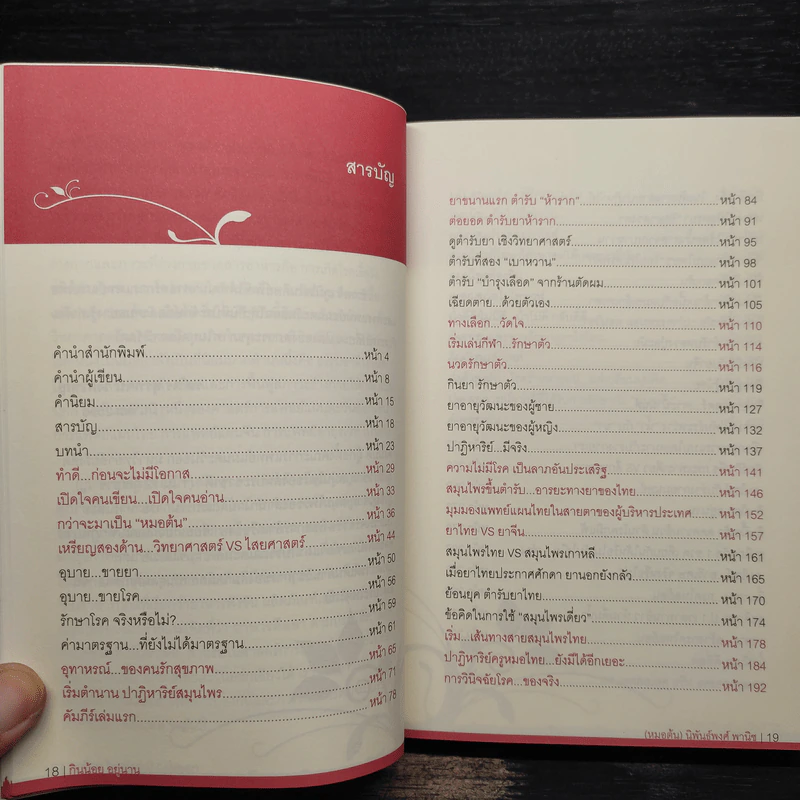 สารบัญ
คำนำสำนักพิมพ์......หน้า 4
คำนำผู้เขียน......หน้า 8
คำนิยม......หน้า 15
สารบัญ......หน้า 18
บทนำ......หน้า 23
ทำดี...ก่อนจะไม่มีโอกาส......หน้า 29
เปิดใจคนเขียน...เปิดใจคนอ่าน......หน้า 33
กว่าจะมาเป็น "หมอต้น"......หน้า 36
เหรียญสองด้าน...วิทยาศาสตร์ VS ไสยศาสตร์......หน้า 44
อุบาย...ขายยา......หน้า 50
อุบาย..ขายโรค......หน้า 56
รักษาโรค จริงหรือไม่?......หน้า 59
ค่ามาตรฐาน...ที่ยังไม่ได้มาตรฐาน......หน้า 61
อุทาหรณ์...ของคนรักสุขภาพ......หน้า 65
เริ่มตำนาน ปาฏิหาริย์สมุนไพร......หน้า 71
คัมภีร์เล่มแรก......หน้า 78
18 | กินน้อย อยู่นาน
ยาขนานแรก ตำรับ "ห้าราก"......หน้า 84
ต่อยอด ตำรับยาห้าราก......หน้า 91
ดูตำรับยา เชิงวิทยาศาสตร์......หน้า 95
ตำรับที่สอง "เบาหวาน"......หน้า 98
ตำรับ "บำรุงเลือด" จากร้านตัดผม......หน้า 101
เฉียดตาย...ด้วยตัวเอง......หน้า 105
ทางเลือก...วัดใจ......หน้า 110
เริ่มเล่นกีฬา...รักษาตัว......หน้า 114
นวดรักษาตัว......หน้า 116
กินยา รักษาตัว......หน้า 119
ยาอายุวัฒนะของผู้ชาย......หน้า 127
ยาอายุวัฒนะของผู้หญิง......หน้า 132
ปาฏิหาริย์...มีจริง......หน้า 137
ความไม่มีโรค เป็นลาภอันประเสริฐ......หน้า 141
สมุนไพรขึ้นตำรับ...อารยะทางยาของไทย......หน้า 146
มุมมองแพทย์แผนไทยในสายตาของผู้บริหารประเทศ......หน้า 152
ยาไทย VS ยาจีน......หน้า 157
สมุนไพรไทย VS สมุนไพรเกาหลี......หน้า 161
เมื่อยาไทยประกาศศักดา ยานอกยังกลัว......หน้า 165
ย้อนยุค ตำรับยาไทย......หน้า 170
ข้อคิดในการใช้ "สมุนไพรเดี่ยว"......หน้า 174
เริ่ม...เส้นทางสายสมุนไพรไทย......หน้า 178
ปาฏิหาริย์ครูหมอไทย...ยังมีได้อีกเยอะ......หน้า 184
การวินิจฉัยโรค...ของจริง......หน้า 192
(หมอต้น) นิพันธ์พงศ์ พานิช | 19